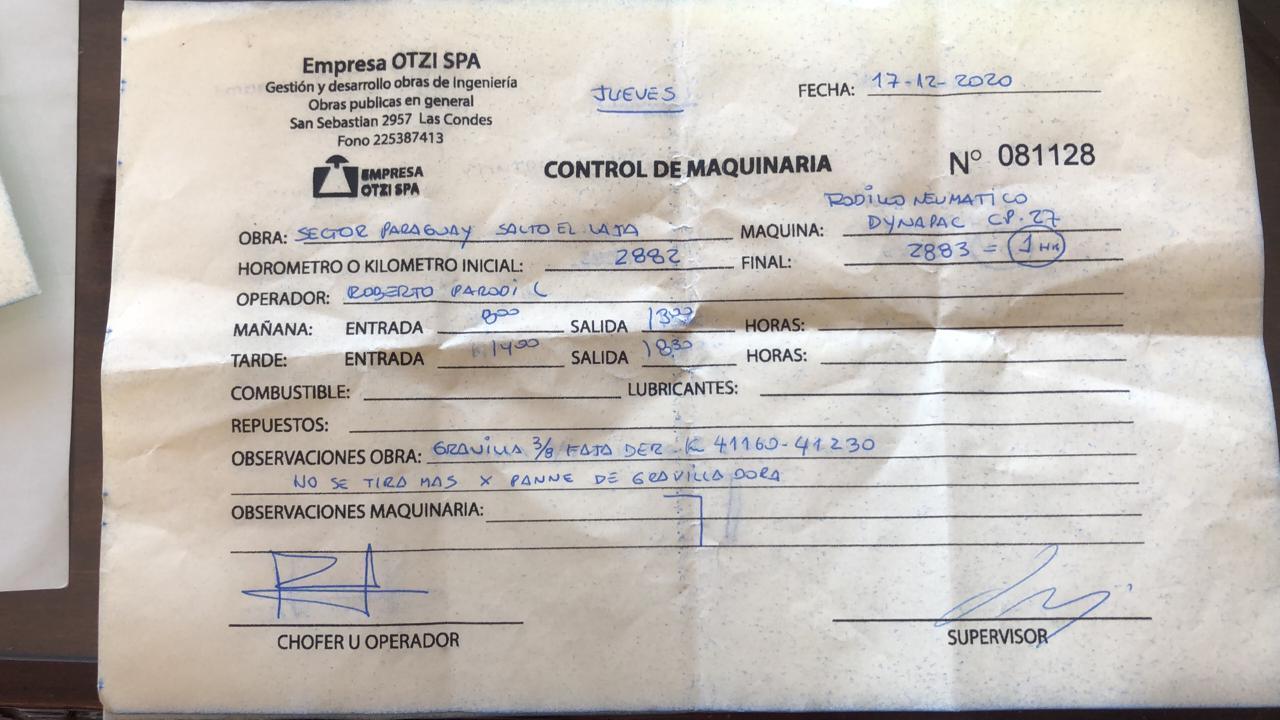 Empresa OTZI SPA
Gestión y desarrollo obras de Ingeniería
Obras publicas en general
San Sebastian 2957 Las Condes
Fono 225387413
EMPRESA
OTZI SPA
JUEVES
FECHA: 17-12-2020
CONTROL DE MAQUINARIA
N° 081128
OBRA: SECTOR PARAGUAY SALTO EL LAJA
MAQUINA: RODILLO NEUMATICO
DYNAPAC CP.27
HOROMETRO O KILOMETRO INICIAL: 2882
FINAL: 2883 = 1 HR
OPERADOR: ROBERTO PARODI C
MAÑANA: ENTRADA 8:00 SALIDA 13:00 HORAS:
TARDE: ENTRADA 14:00 SALIDA 18:30 HORAS:
COMBUSTIBLE: LUBRICANTES:
REPUESTOS:
OBSERVACIONES OBRA: GRAVILLA 3/8 FAJA DER. K 41160-41230
NO SE TIRA MAS X PANNE DE GRAVILLADORA
OBSERVACIONES MAQUINARIA:
CHOFER U OPERADOR
SUPERVISOR